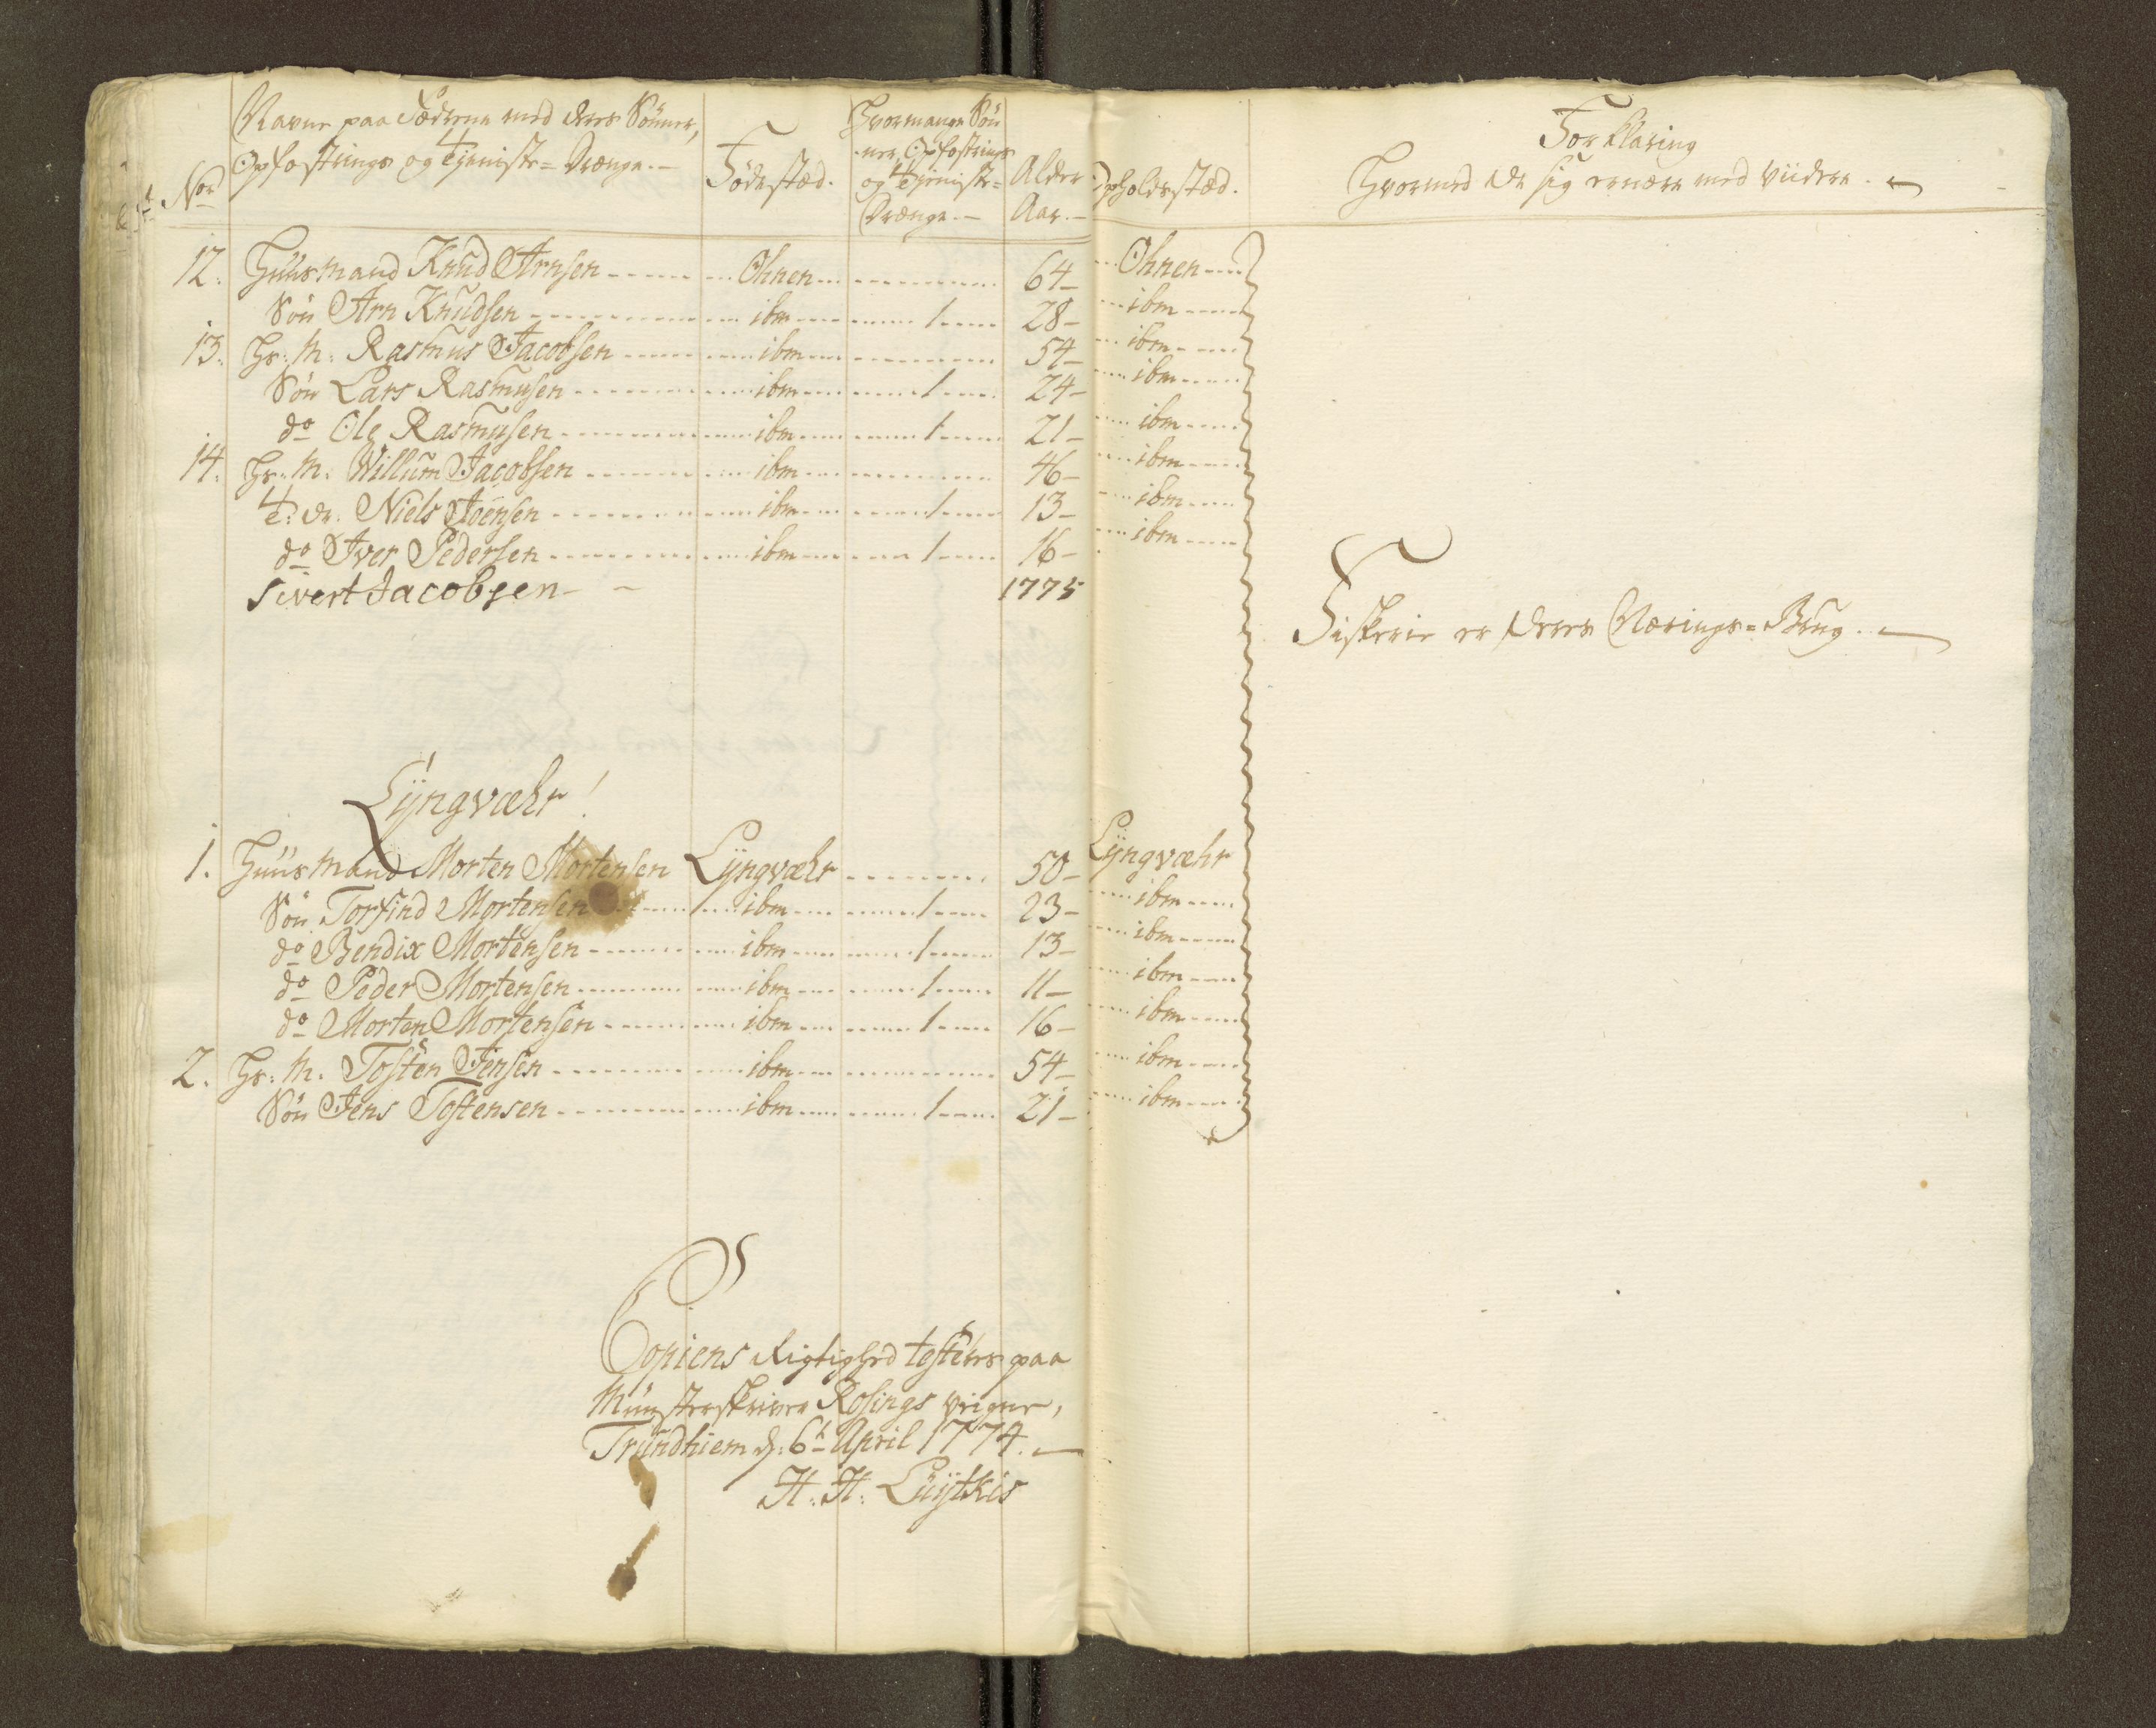 Navne paa Fædrene med deres Sönner,
Opfostrings og Tjeniste= Drænge. —
No
Födestæd.
Hvormange Sön
ner, Opfostrings
og Tjeniste=
Drænge. —
Alder
Aar. —
Opholdsstæd.
Forklaring
Hvormed de sig ernære med viidere. —
12. Huusmand Knud Arnsen Ohnen 64 — Ohnen
Sön Arn Knudsen ibm 1 28 — ibm
13. Hs: M: Rasmus Jacobsen ibm 54 — ibm
Sön Lars Rasmusen ibm 1 24 — ibm
do Ole Rasmusen ibm 1 21 — ibm
14. Hs: M: Willum Jacobsen ibm 46 — ibm
T: dr. Niels Joensen ibm 1 13 — ibm
do Iver Pedersen ibm 1 16 — ibm
Sivert Jacobsen — — 1775
Fiskerie er deres Nærings=Brug. —
Lyngvæhr!
1. Huusmand Morten Mortensen Lyngvæhr 50 — Lyngvæhr
Sön Torfind Mortensen ibm 1 23 — ibm
do Bendix Mortensen ibm 1 13 — ibm
do Peder Mortensen ibm 1 11 — ibm
do Morten Mortensen ibm 1 16 — ibm
2. Hs: M. Tosten Jensen ibm 54 — ibm
Sön Jens Tostensen ibm 1 21 — ibm
Copiens Rigtighed testeres paa
Mynsterskriver Rosings veigne,
Trundhiem d: 6t April 1774. —
H: H: Luytkis